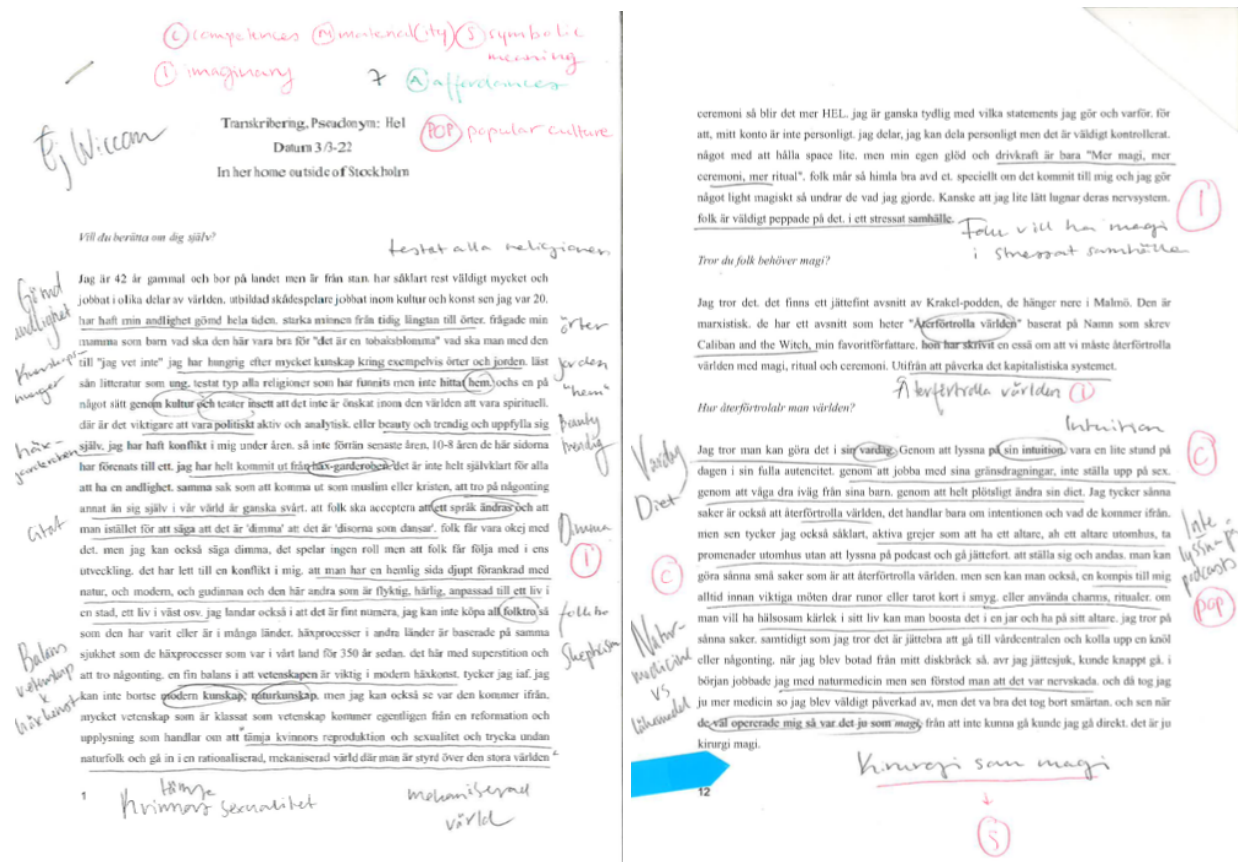 (C) competences (M) material(ity) (S) symbolic
meaning
(I) imaginary 7 (A) affordances
Ej Wiccan
Transkribering, Pseudonym: Hel
(POP) popular culture
Datum 3/3-22
In her home outside of Stockholm
Vill du berätta om dig själv?
testat alla religioner
Jag är 42 år gammal och bor på landet men är från stan. har såklart rest väldigt mycket och
jobbat i olika delar av världen. utbildad skådespelare jobbat inom kultur och konst sen jag var 20.
har haft min andlighet gömd hela tiden. starka minnen från tidig längtan till örter. frågade min
mamma som barn vad ska den här vara bra för "det är en tobaksblomma" vad ska man med den
till "jag vet inte" jag har hungrig efter mycket kunskap kring exempelvis örter och jorden. läst
sån litteratur som ung. testat typ alla religioner som har funnits men inte hittat hem. ochs en på
något sätt genom kultur och teater insett att det inte är önskat inom den världen att vara spirituell.
där är det viktigare att vara politiskt aktiv och analytisk. eller beauty och trendig och uppfylla sig
själv. jag har haft konflikt i mig under åren. så inte förrän senaste åren, 10-8 åren de här sidorna
har förenats till ett. jag har helt kommit ut från häx-garderoben. det är inte helt självklart för alla
att ha en andlighet. samma sak som att komma ut som muslim eller kristen, att tro på någonting
annat än sig själv i vår värld är ganska svårt. att folk ska acceptera att ett språk ändras och att
man istället för att säga att det är 'dimma' att det är 'disorna som dansar'. folk får vara okej med
det. men jag kan också säga dimma, det spelar ingen roll men att folk får följa med i ens
utveckling. det har lett till en konflikt i mig. att man har en hemlig sida djupt förankrad med
natur, och modern, och gudinnan och den här andra som är flyktig, härlig, anpassad till ett liv i
en stad, ett liv i väst osv. jag landar också i att det är fint numera, jag kan inte köpa all folktro så
som den har varit eller är i många länder. häxprocesser i andra länder är baserade på samma
sjukhet som de häxprocesser som var i vårt land för 350 år sedan. det här med superstition och
att tro någonting. en fin balans i att vetenskapen är viktig i modern häxkonst. tycker jag iaf. jag
kan inte bortse modern kunskap, naturkunskap. men jag kan också se var den kommer ifrån.
mycket vetenskap som är klassat som vetenskap kommer egentligen från en reformation och
upplysning som handlar om att "tämja kvinnors reproduktion och sexualitet och trycka undan
naturfolk och gå in i en rationaliserad, mekaniserad värld där man är styrd över den stora världen"
Gömd
andlighet
Kunskaps-
hunger
häx-
garderoben
Citat
Balans
vetenskap
x
häxkonst
örter
jorden
"hem"
Beauty
trendig
Dimma
(I)
folktro
Skepticism
1
tämja
kvinnors sexualitet
mekaniserad
värld
ceremoni så blir det mer HEL. jag är ganska tydlig med vilka statements jag gör och varför. för
att, mitt konto är inte personligt. jag delar, jag kan dela personligt men det är väldigt kontrollerat.
något med att hålla space lite. men min egen glöd och drivkraft är bara "Mer magi, mer
ceremoni, mer ritual". folk mår så himla bra avd et. speciellt om det kommit till mig och jag gör
något light magiskt så undrar de vad jag gjorde. Kanske att jag lite lätt lugnar deras nervsystem.
folk är väldigt peppade på det. i ett stressat samhälle.
(I)
Folk vill ha magi
i stressat samhälle
Tror du folk behöver magi?
Jag tror det. det finns ett jättefint avsnitt av Krakel-podden, de hänger nere i Malmö. Den är
marxistisk. de har ett avsnitt som heter "Återförtrolla världen" baserat på Namn som skrev
Caliban and the Witch, min favoritförfattare. hon har skrivit en essä om att vi måste återförtrolla
världen med magi, ritual och ceremoni. Utifrån att påverka det kapitalistiska systemet.
Återförtrolla världen (I)
Hur återförtrolalr man världen?
Intuition
Jag tror man kan göra det i sin vardag. Genom att lyssna på sin intuition, vara en lite stund på
dagen i sin fulla autencitet. genom att jobba med sina gränsdragningar, inte ställa upp på sex.
genom att våga dra iväg från sina barn. genom att helt plötsligt ändra sin diet. Jag tycker sånna
saker är också att återförtrolla världen, det handlar bara om intentionen och vad de kommer ifrån.
men sen tycker jag också såklart, aktiva grejer som att ha ett altare, ah ett altare utomhus, ta
promenader utomhus utan att lyssna på podcast och gå jättefort. att ställa sig och andas. man kan
göra sånna små saker som är att återförtrolla världen. men sen kan man också, en kompis till mig
alltid innan viktiga möten drar runor eller tarot kort i smyg. eller använda charms, ritualer. om
man vill ha hälsosam kärlek i sitt liv kan man boosta det i en jar och ha på sitt altare. jag tror på
sånna saker. samtidigt som jag tror det är jättebra att gå till vårdcentralen och kolla upp en knöl
eller någonting. när jag blev botad från mitt diskbråck så. avr jag jättesjuk, kunde knappt gå. i
början jobbade jag med naturmedicin men sen förstod man att det var nervskada. och då tog jag
ju mer medicin so jag blev väldigt påverkad av, men det va bra det tog bort smärtan. och sen när
de väl opererade mig så var det ju som magi, från att inte kunna gå kunde jag gå direkt. det är ju
kirurgi magi.
Vardag
Diet
(C)
Natur-
medicin
vs
läkemedel
(C)
Inte
lyssna på
podcasts
(pop)
Kirurgi som magi
(S)
12